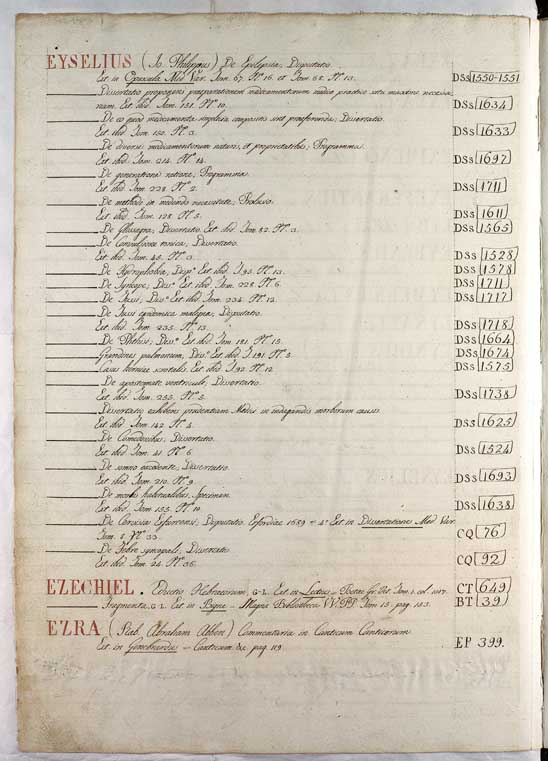 EYSELIUS (Jo. Philippus) De Epilepsia; Disputatio.
Est in Opuscula Med. Var. Tom. 67. Nº 16. et Tom. 68. Nº 13. DSS 1550-1551
Dissertatio
Est ibid. Tom. 151. Nº 10. DSS 1634
De eo quod medicamenta simplicia compositis sint praeferenda; Dissertatio.
Est ibid. Tom. 150. Nº 3. DSS 1633
De diversis medicamentorum naturis, et proprietatibus; Programma.
Est ibid. Tom. 214. Nº 14. DSS 1697
De generationis natura; Programma.
Est ibid. Tom. 228. Nº 2. DSS 1711
De methodi in medendo necessitate; Prolusio.
Est ibid. Tom. 128. Nº 5. DSS 1611
De Dissertatio. Est ibid. Tom. 82. Nº 3. DSS 1565
De Convulsione tonica; Dissertatio.
Est ibid. Tom. 45. Nº 3. DSS 1528
De Hydrophobia; Disp. Est ibid. T. 95. Nº 13. DSS 1578
De Syncope; Dis. Est ibid. Tom. 228. Nº 6. DSS 1711
De Tussi; Dis. Est ibid. Tom. 234. Nº 12. DSS 1717
De Tussi epidemica maligna; Disputatio.
Est ibid. Tom. 235. Nº 13. DSS 1718
De Phthisi; Dis. Est ibid. Tom. 181. Nº 15. DSS 1664
Grandines pulmonum; Dis. Est ibid. T. 191. Nº 2. DSS 1674
Casus herniae scrotalis. Est ibid. T. 92. Nº 12. DSS 1575
De apostemate ventriculi; Dissertatio.
Est ibid. Tom. 255. Nº 5. DSS 1738
Dissertatio exhibens prudentiam Medici in indagandis morborum causis.
Est ibid. Tom. 142. Nº 4. DSS 1625
De Comedonibus; Dissertatio.
Est ibid. Tom. 41. Nº 6. DSS 1524
De somno accidente; Dissertatio.
Est ibid. Tom. 210. Nº 9. DSS 1693
De morbis habitualibus; Specimen.
Est ibid. Tom. 155. Nº 10. DSS 1638
De Disputatio. Erfordiae 1689 = 4º Est in Dissertationes Med. Var.
Tom. 8. Nº 33. CQ 76
De Febre syncopali; Dissertatio.
Est ibid. Tom. 24. Nº 36. CQ 92
EZECHIEL. Eductio Hebraeorum, G-L. Est in Lectius = Poetae Gr. Vet. Tom. 1. col. CT 649
Fragmenta, G-L. Est in Bigne = Magna Bibliotheca VV. PP. Tom. 15. pag. 183. BT 39
EZRA (Rab. Abraham Abben) Commentaria in Canticum Canticorum.
Est in Genebrardus = Canticum &c. pag. 119. EP 399.